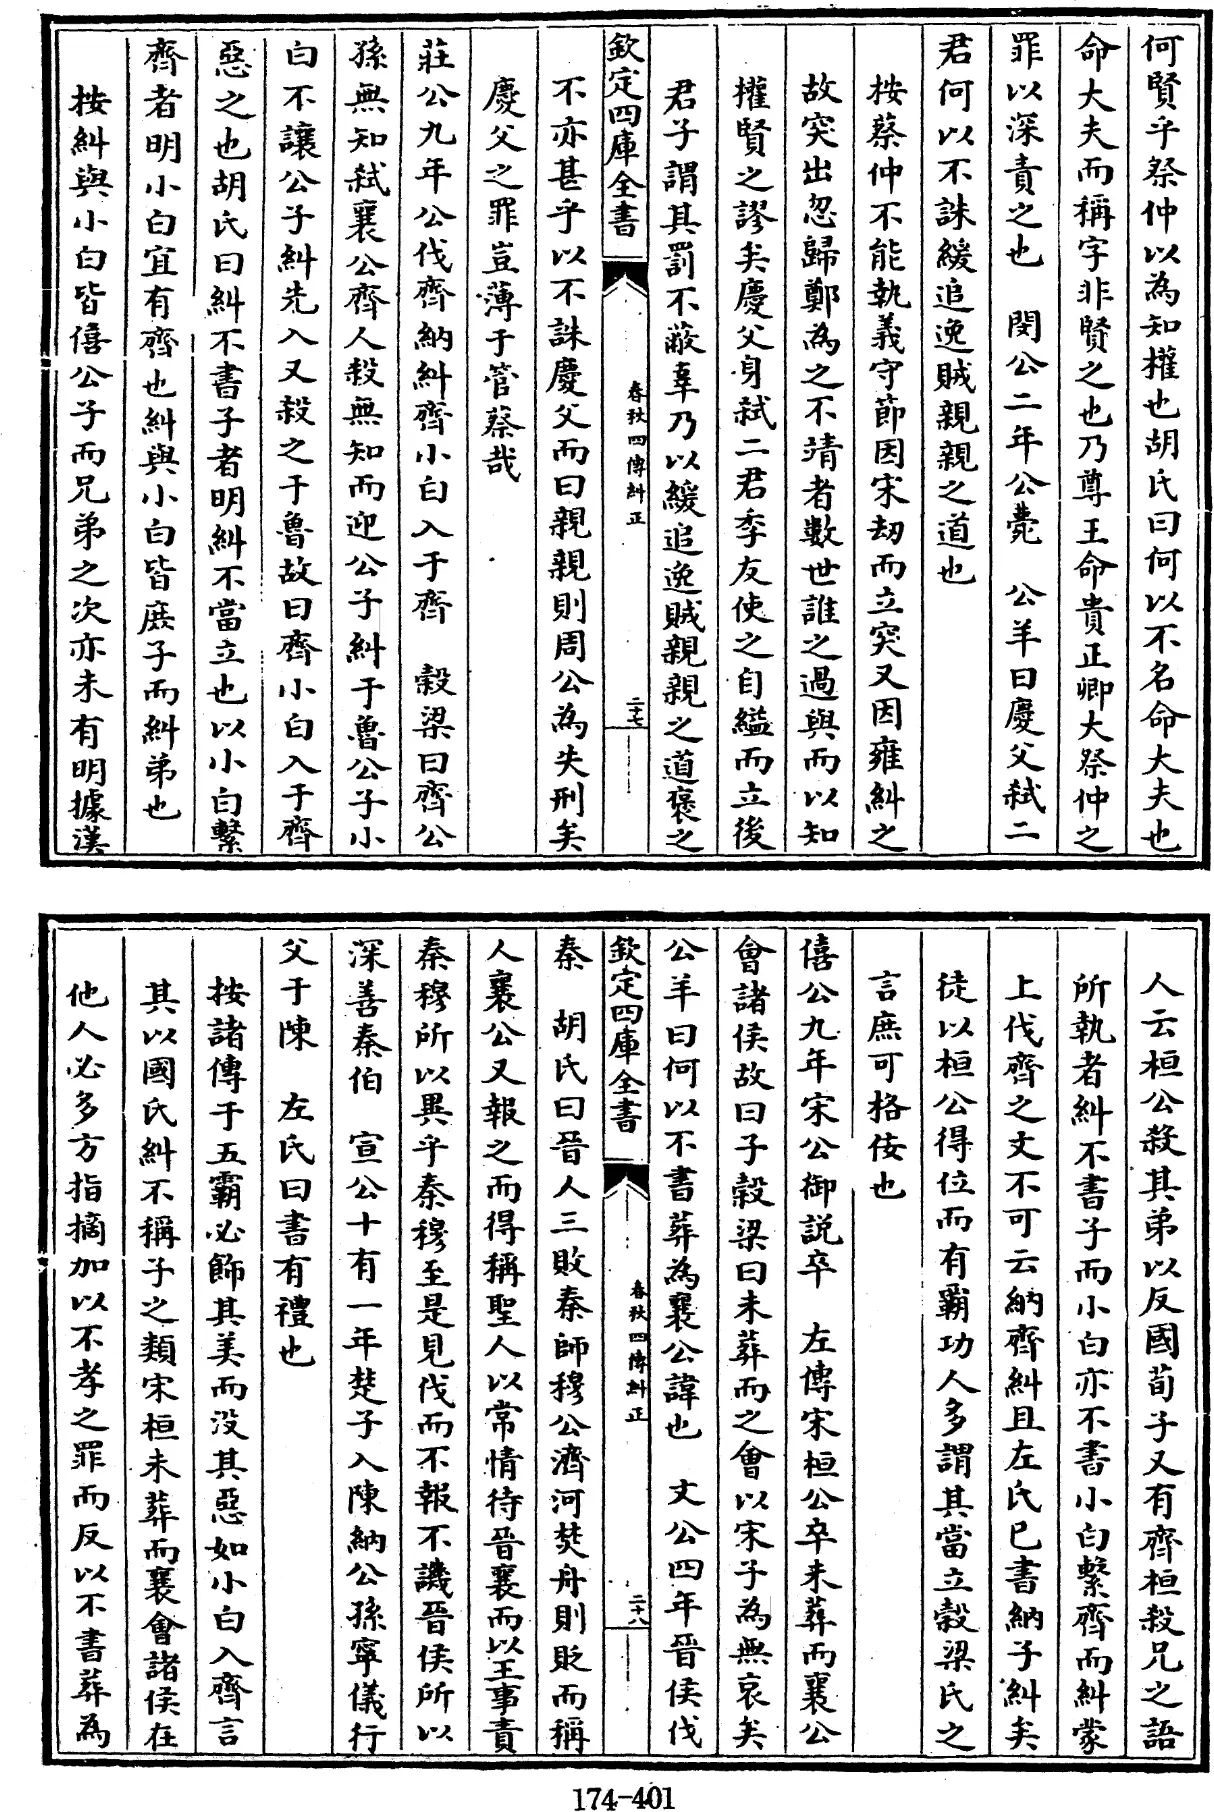 何賢乎祭仲以為知權也胡氏曰何以不名命大夫也
命大夫而稱字非賢之也乃尊王命貴正卿大祭仲之
罪以深責之也　閔公二年公薨　公羊曰慶父弑二
君何以不誅緩追逸賊親親之道也
按蔡仲不能執義守節因宋刼而立突又因雍糾之
故突出忽歸鄭為之不靖者數世誰之過與而以知
權賢之謬矣慶父身弑二君季友使之自縊而立後
君子謂其罰不蔽辜乃以緩追逸賊親親之道褒之
欽定四庫全書
春秋四傳糾正
二十七
不亦甚乎以不誅慶父而曰親親則周公為失刑矣
慶父之罪豈薄于管蔡哉
莊公九年公伐齊納糾齊小白入于齊　穀梁曰齊公
孫無知弑襄公齊人殺無知而迎公子糾于魯公子小
白不讓公子糾先入又殺之于魯故曰齊小白入于齊
惡之也胡氏曰糾不書子者明糾不當立也以小白繫
齊者明小白宜有齊也糾與小白皆庶子而糾弟也
按糾與小白皆僖公子而兄弟之次亦未有明據漢
人云桓公殺其弟以反國荀子又有齊桓殺兄之語
所執者糾不書子而小白亦不書小白繫齊而糾蒙
上伐齊之文不可云納齊糾且左氏已書納子糾矣
徒以桓公得位而有霸功人多謂其當立穀梁氏之
言庶可格佞也
僖公九年宋公御説卒　左傳宋桓公卒未葬而襄公
會諸侯故曰子穀梁曰未葬而之會以宋子為無哀矣
公羊曰何以不書葬為襄公諱也　文公四年晉侯伐
欽定四庫全書
春秋四傳糾正
二十八
秦　胡氏曰晉人三敗秦師穆公濟河焚舟則貶而稱
人襄公又報之而得稱聖人以常情待晉襄而以王事責
秦穆所以異乎秦穆至是見伐而不報不譏晉侯所以
深善秦伯　宣公十有一年楚子入陳納公孫寧儀行
父于陳　左氏曰書有禮也
按諸傳于五霸必飾其美而没其惡如小白入齊言
其以國氏糾不稱子之類宋桓未葬而襄會諸侯在
他人必多方指摘加以不孝之罪而反以不書葬為
174-401